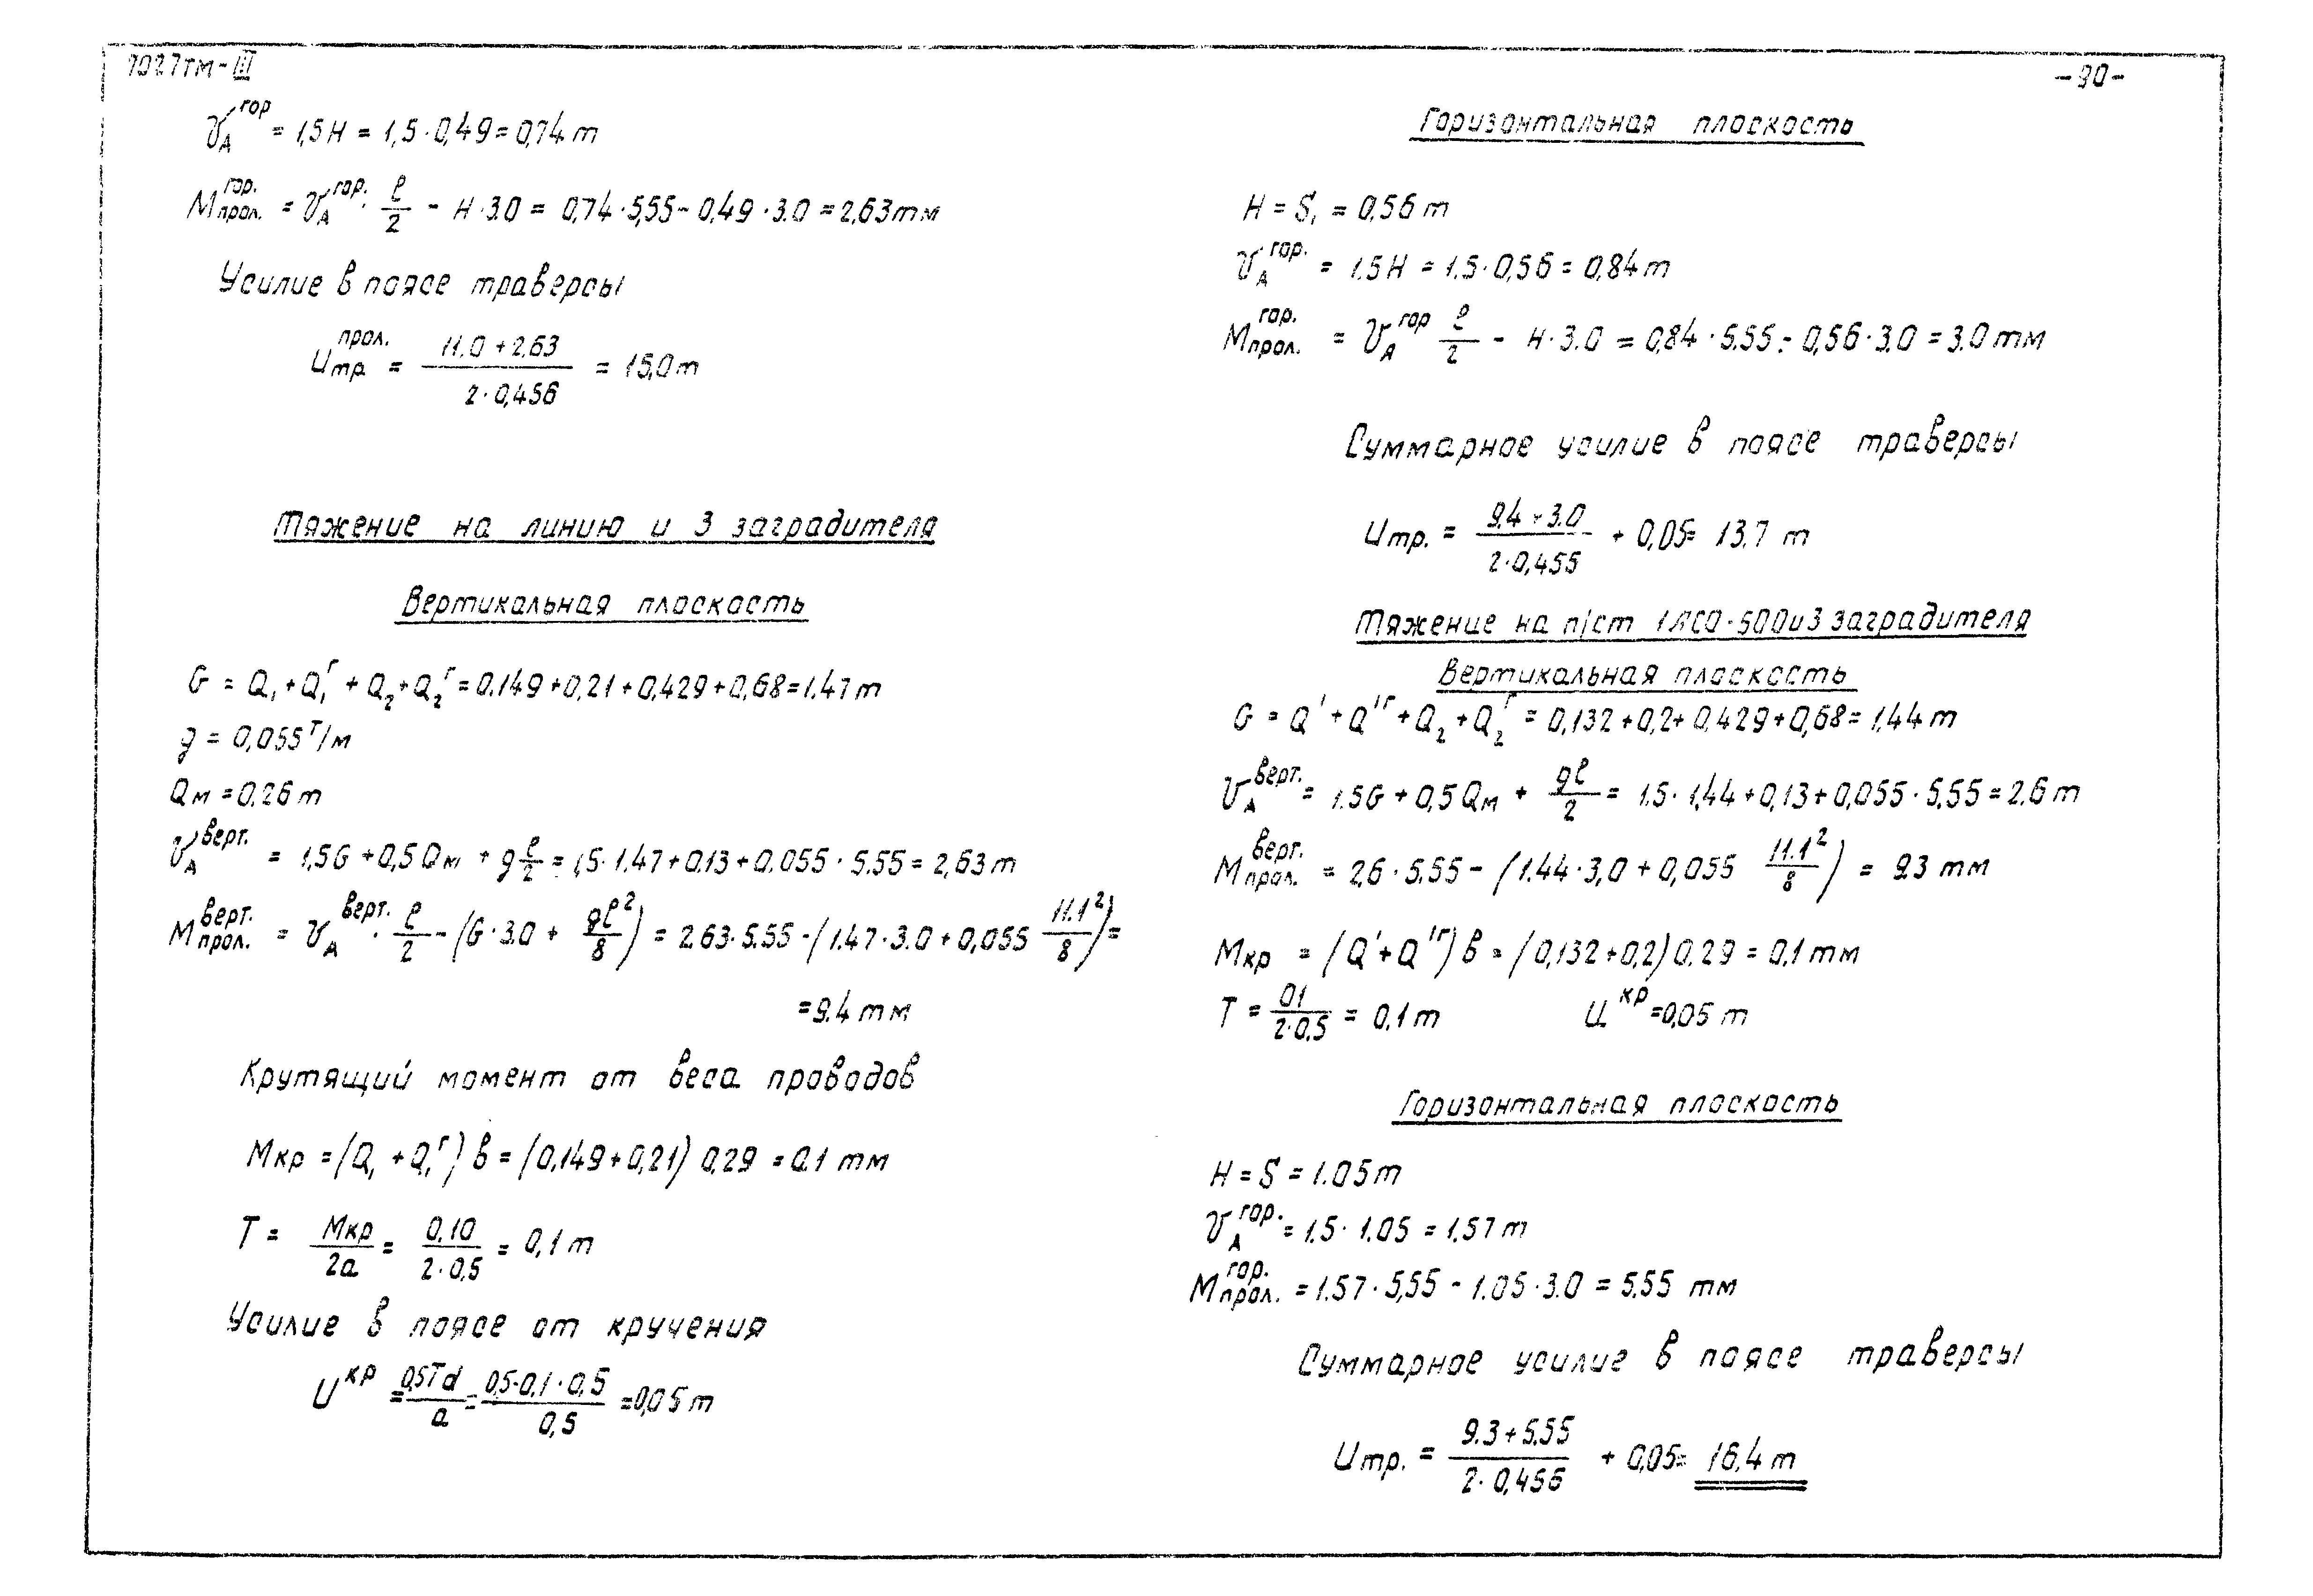 7027тм-III
-90-
V_A^гор = 1,5H = 1,5·0,49 = 0,74 т
M_прол.^гор. = V_A^гор. · ℓ/2 - H·3.0 = 0,74·5,55 - 0,49·3.0 = 2,63 тм
Усилие в поясе траверсы
U_тр^прол. = (11.0+2.63)/(2·0,456) = 15,0 т
Тяжение на линию и 3 заградителя
Вертикальная плоскость
G = Q₁+Q₁^Г+Q₂+Q₂^Г = 0.149+0,21+0,429+0,68 = 1.47 т
g = 0,055 т/м
Qм = 0,26 т
V_A^верт. = 1,5G+0,5Qм + g ℓ/2 = 1,5·1.47+0.13+0.055·5.55 = 2,63 т
M_прол.^верт. = V_A^верт. · ℓ/2 - (G·3.0 + gℓ²/8) = 2.63·5.55 - (1.47·3.0+0,055 11.1²/8) =
= 9.4 тм
Крутящий момент от веса проводов
Mкр = (Q₁ + Q₁^Г) в = (0,149+0,21) 0,29 = 0.1 тм
T = Mкр/2a = 0,10/(2·0,5) = 0,1 т
Усилие в поясе от кручения
U^кр = 0,5Td/a = (0,5·0,1·0,5)/0,5 = 0,05 т
Горизонтальная плоскость
H = S₁ = 0,56 т
V_A^гор. = 1.5H = 1.5·0,56 = 0,84 т
M_прол.^гор. = V_A^гор ℓ/2 - H·3.0 = 0,84·5.55 - 0,56·3.0 = 3.0 тм
Суммарное усилие в поясе траверсы
Uтр. = (9.4+3.0)/(2·0,455) + 0,05 = 13.7 т
Тяжение на п/ст 1АСО-500 и 3 заградителя
Вертикальная плоскость
G = Q'+Q'^Г+Q₂+Q₂^Г = 0,132+0,2+0,429+0,68 = 1,44 т
V_A^верт. = 1.5G+0,5Qм + gℓ/2 = 1.5·1,44+0,13+0,055·5,55 = 2.6 т
M_прол.^верт. = 2,6·5.55 - (1.44·3,0+0,055 11.1²/8) = 9.3 тм
Mкр = (Q'+Q'^Г) в = (0,132+0,2) 0.29 = 0.1 тм
T = 01/(2·0,5) = 0.1 т U^кр = 0,05 т
Горизонтальная плоскость
H = S = 1.05 т
V_A^гор. = 1.5·1.05 = 1.57 т
M_прол.^гор. = 1.57·5,55 - 1.05·3.0 = 5.55 тм
Суммарное усилие в поясе траверсы
Uтр. = (9.3+5.55)/(2·0,456) + 0,05 = 16,4 т